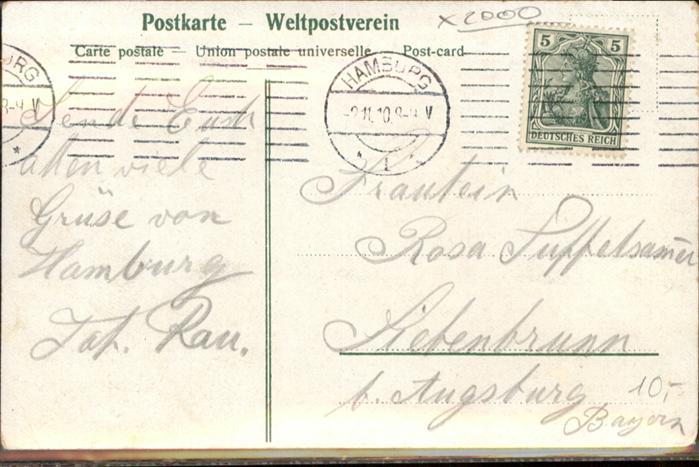 Postkarte – Weltpostverein
x2000
Carte postale – Union postale universelle Post-card
HAMBURG
-2.11.10.8-9 V
1
5 5
DEUTSCHES REICH
Sende Euch
allen viele
Grüse von
Hamburg
Joh. Rau.
Fräulein
Rosa
Siebenbrunn
b. Augsburg
Bayern
10,-